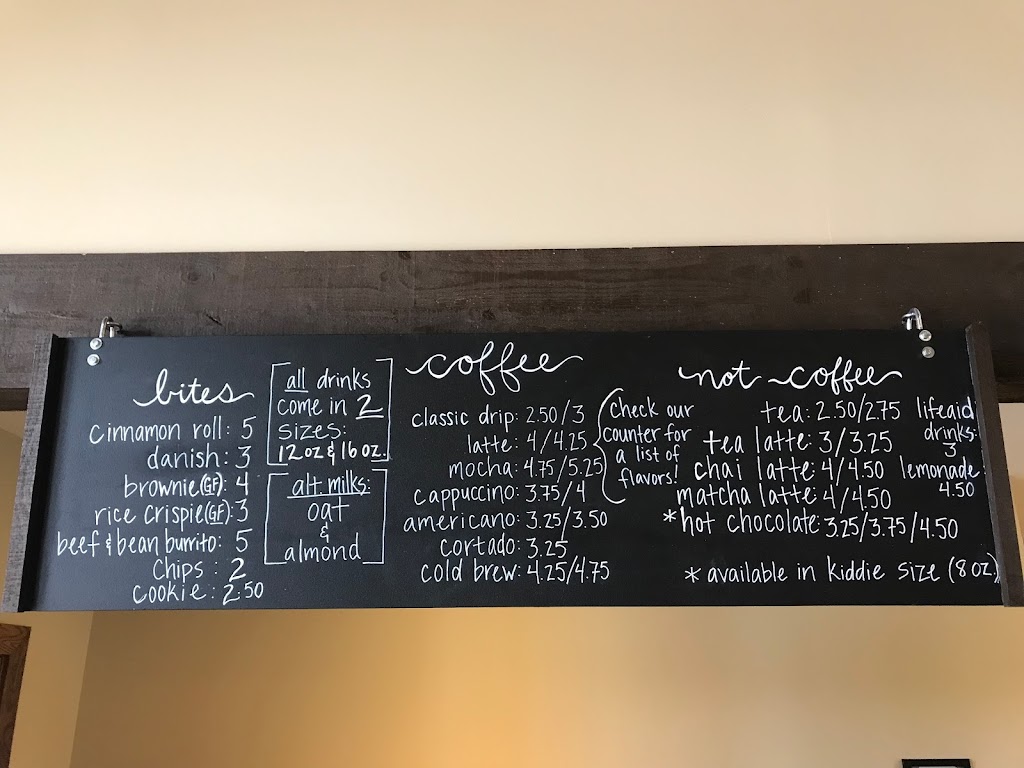 bites
cinnamon roll: 5
danish: 3
brownie (GF): 4
rice crispie (GF): 3
beef & bean burrito: 5
chips: 2
cookie: 2.50
all drinks
come in 2
sizes:
12 oz & 16 oz.
alt milks:
oat
&
almond
coffee
classic drip: 2.50/3
latte: 4/4.25
mocha: 4.75/5.25
cappuccino: 3.75/4
americano: 3.25/3.50
cortado: 3.25
cold brew: 4.25/4.75
check our
counter for
a list of
flavors!
not coffee
tea: 2.50/2.75
tea latte: 3/3.25
chai latte: 4/4.50
matcha latte: 4/4.50
*hot chocolate: 3.25/3.75/4.50
lifeaid
drinks:
3
lemonade:
4.50
* available in kiddie size (8 oz)